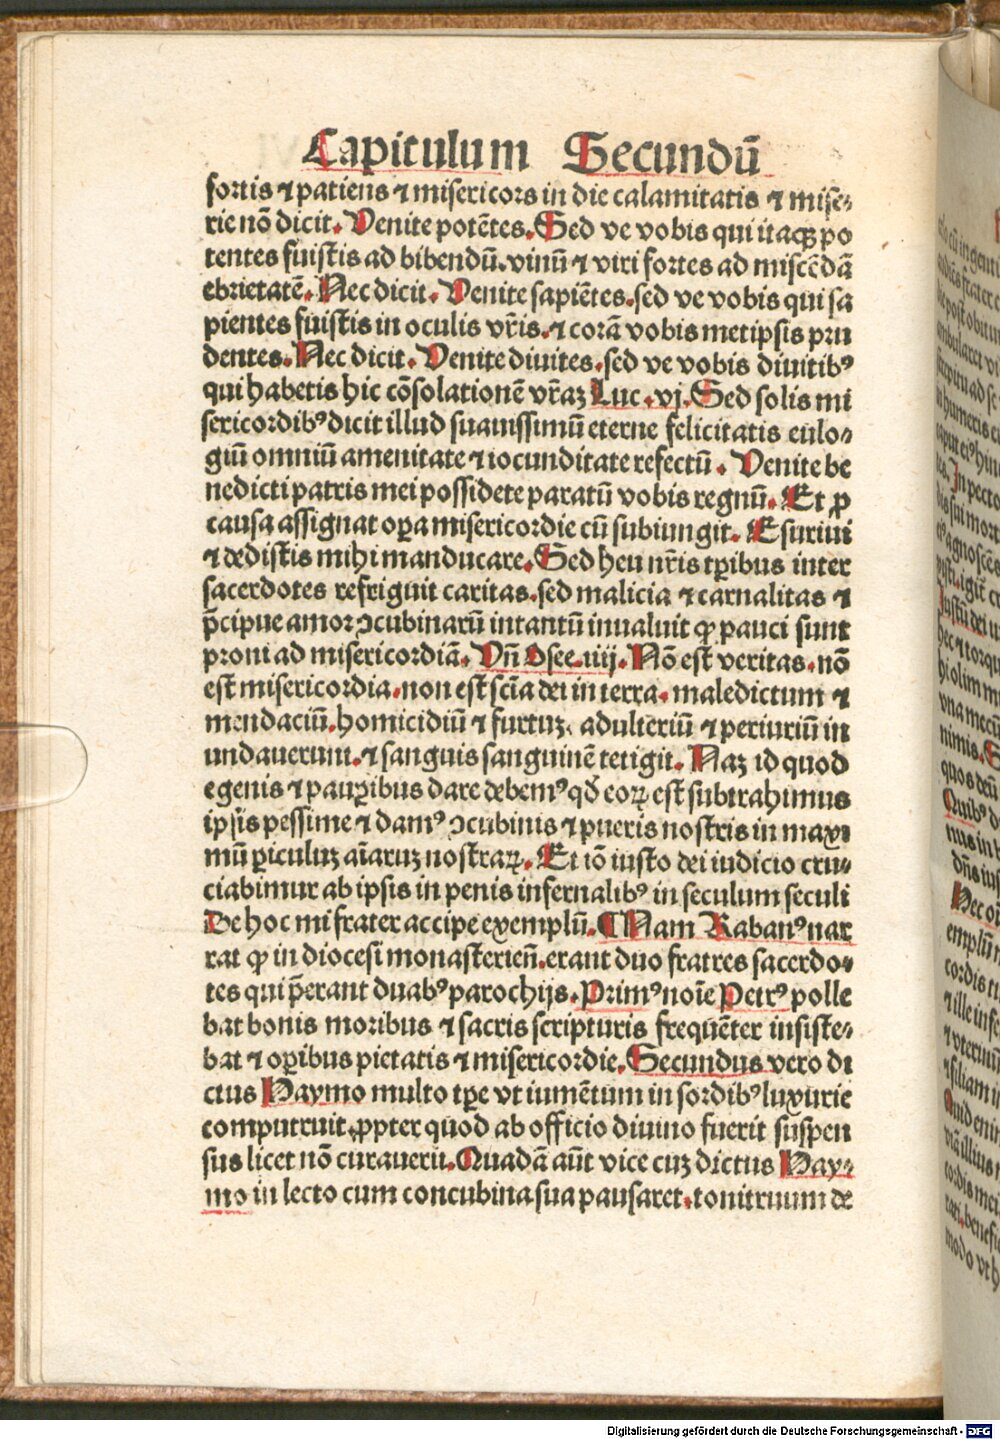 Capitulum Secundū
fortis ⁊ patiens ⁊ misericors in die calamitatis ⁊ mise-
rie nō dicit. Uenite potētes. Sed ve vobis qui itaqꝫ po
tentes fuistis ad bibendū. vinū ⁊ viri fortes ad miscēdā
ebrietatē. Nec dicit. Uenite sapiētes. sed ve vobis qui sa
pientes fuistis in oculis vr̄is. ⁊ corā vobis metipsis pru
dentes. Nec dicit. Uenite diuites. sed ve vobis diuitibꝰ
qui habetis hic cōsolationē vr̄aꝫ Luc. vj. Sed solis mi
sericordibꝰ dicit illud suauissimū eterne felicitatis eulo-
giū omniū amenitate ⁊ iocunditate refectū. Uenite be
nedicti patris mei possidete paratū vobis regnū. Et ꝓ
causa assignat oꝑa misericordie cū subiungit. Esuriui
⁊ dedistis mihi manducare. Sed heu nr̄is tꝑibus inter
sacerdotes refriguit caritas. sed malicia ⁊ carnalitas ⁊
p̄cipue amor ↄcubinarū intantū inualuit ꝙ pauci sunt
proni ad misericordiā. Un̄ Osee. iiij. Nō est veritas. nō
est misericordia. non est scīa dei in terra. maledictum ⁊
mendaciū. homicidiū ⁊ furtuꝫ. adulteriū ⁊ periuriū in
undauerunt. ⁊ sanguis sanguinē tetigit. Naꝫ id quod
egenis ⁊ pauꝑibus dare debemꝰ qd̄ eoꝝ est subtrahimus
ipsis pessime ⁊ damꝰ ↄcubinis ⁊ pueris nostris in maxi
mū ꝑiculuꝫ aīaruꝫ nostraꝝ. Et iō iusto dei iudicio cru-
ciabimur ab ipsis in penis infernalibꝰ in seculum seculi
De hoc mi frater accipe exemplū. ¶ Nam Rabanꝰ nar
rat ꝙ in diocesi monasterien̄. erant duo fratres sacerdo-
tes qui p̄erant duabꝰ parochijs. Primꝰ noīe Petrꝰ polle
bat bonis moribus ⁊ sacris scripturis frequēter insiste-
bat ⁊ oꝑibus pietatis ⁊ misericordie. Secundus vero di
ctus Haymo multo tꝑe vt iumētum in sordibꝰ luxurie
computruit ꝓpter quod ab officio diuino fuerit suspen
sus licet nō curauerit. Quadā aūt vice cuꝫ dictus Hay-
mo in lecto cum concubina sua pausaret. tonitruum de
Digitalisierung gefördert durch die Deutsche Forschungsgemeinschaft - DFG